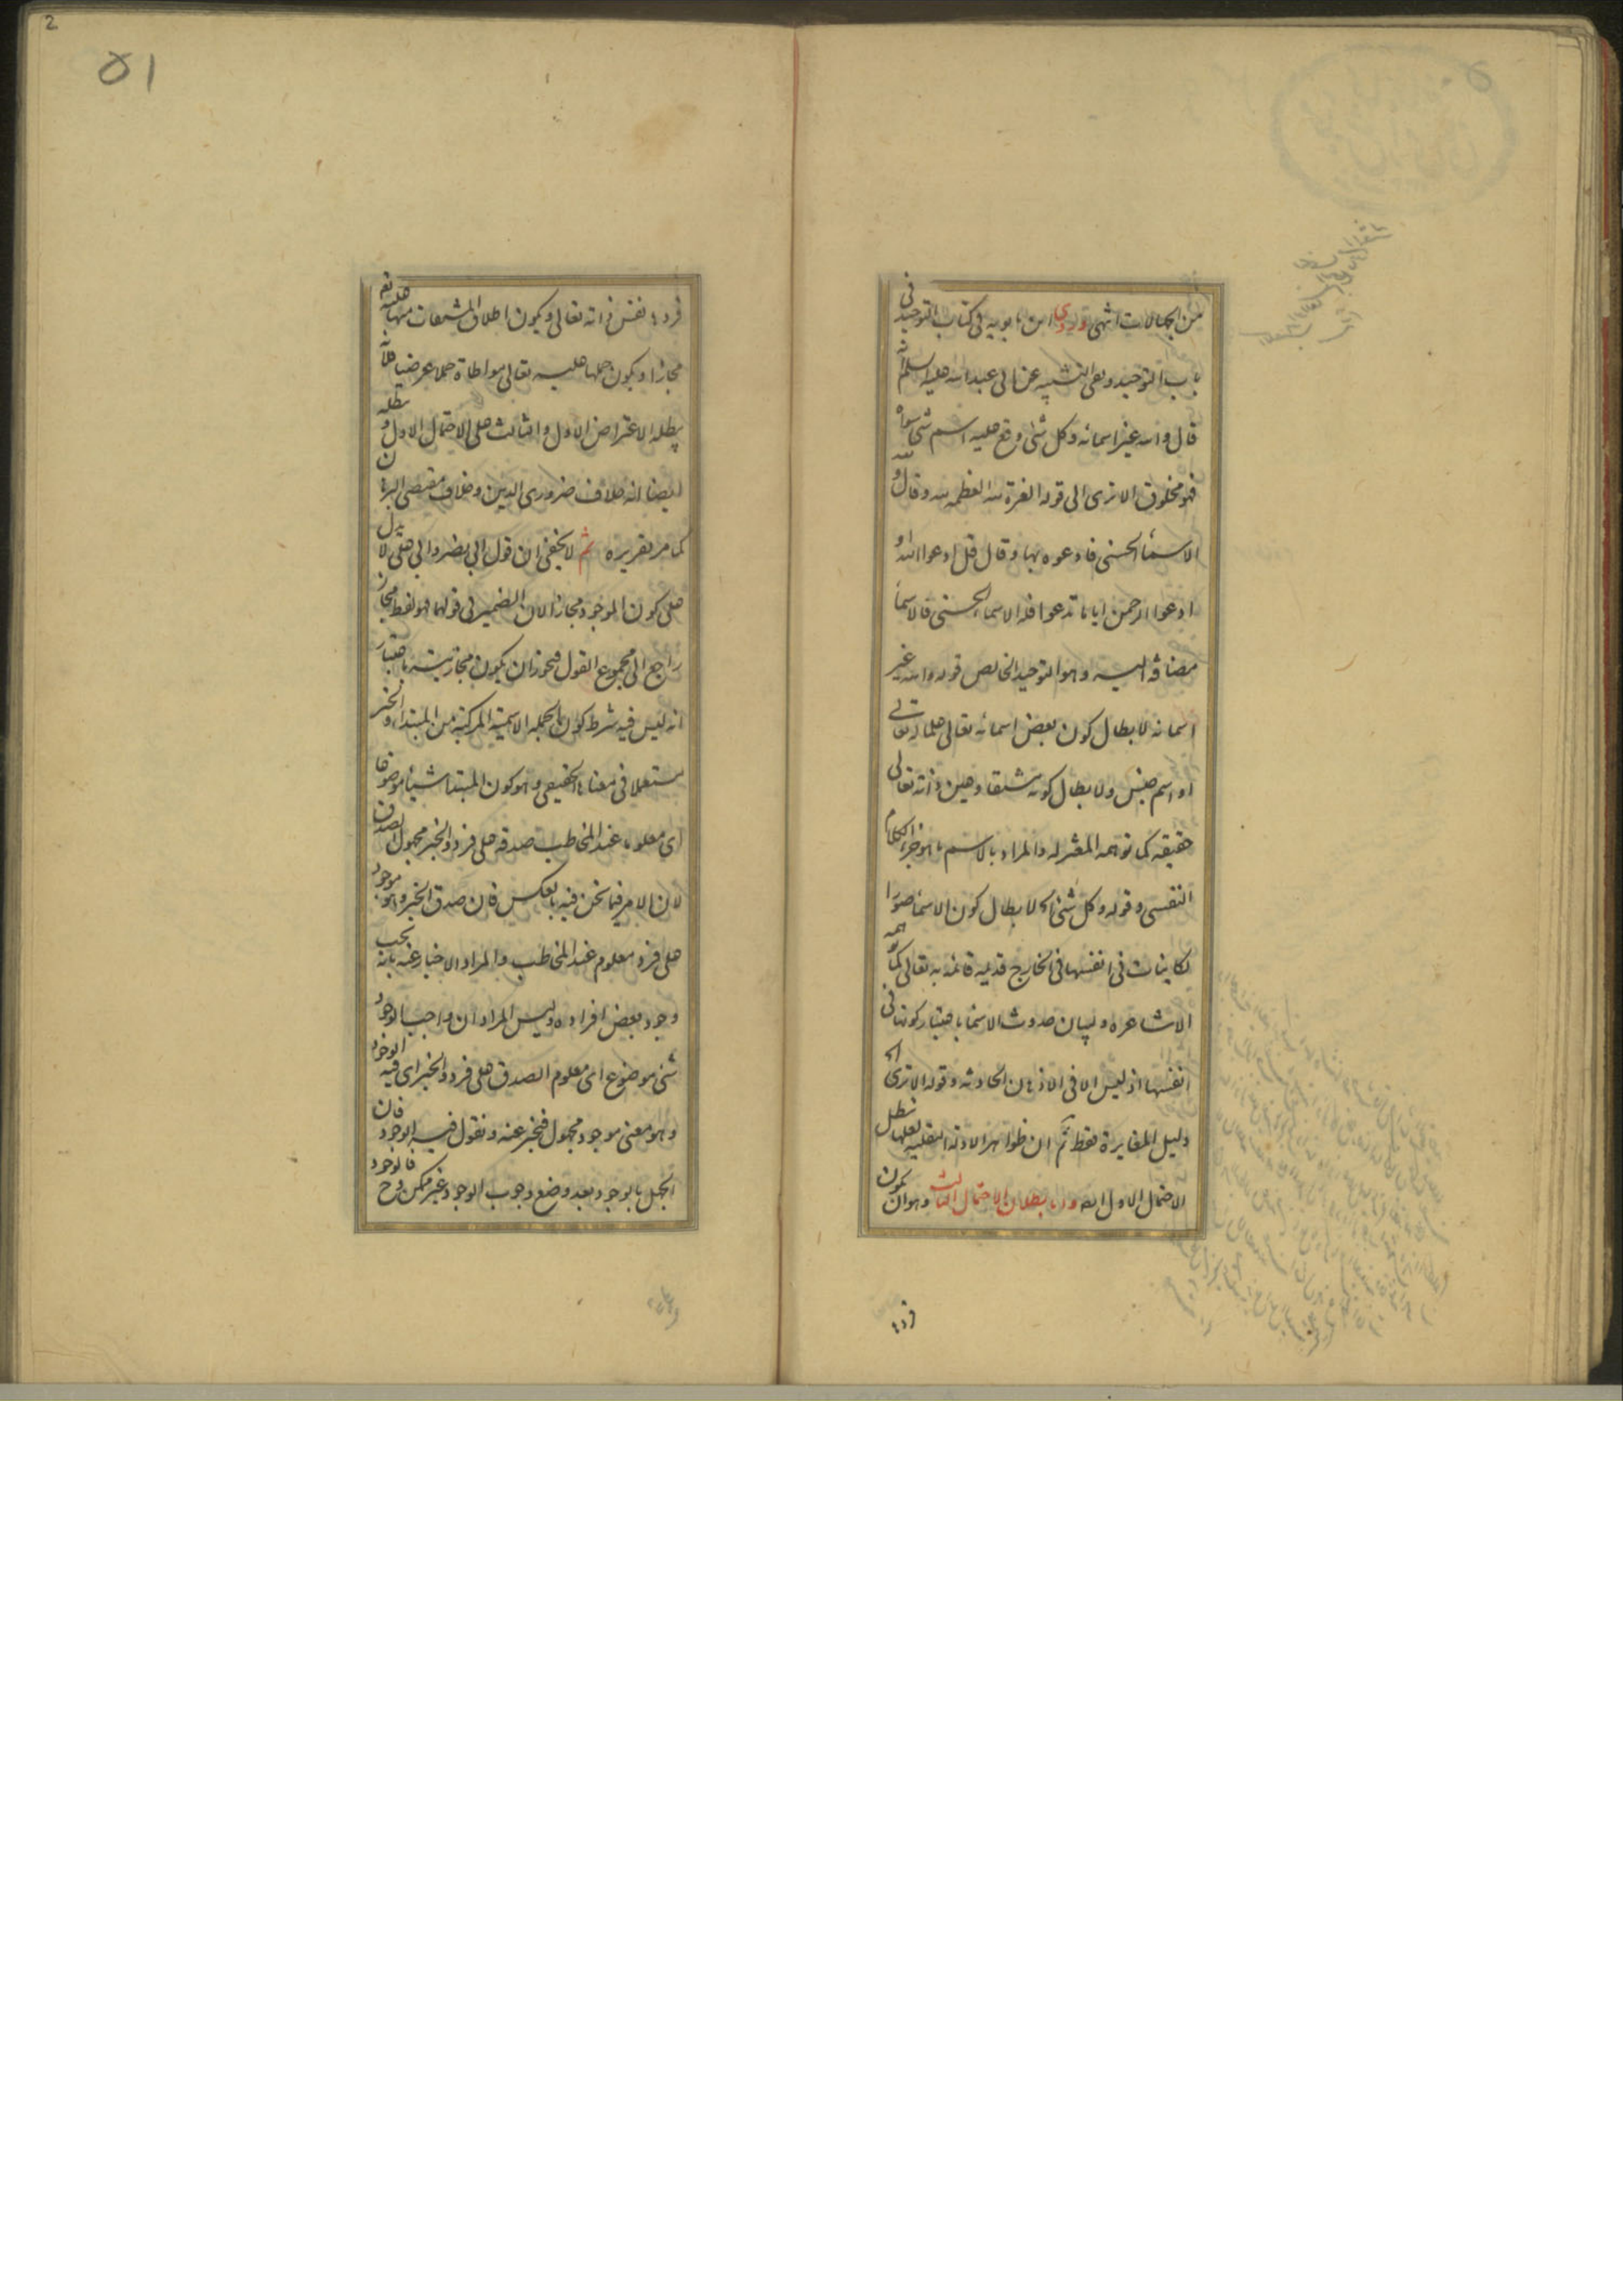 من الكمالات انتهى وروى ابن بابويه فى كتاب التوحيد فى
باب التوحيد ونفى التشبيه عن ابى عبد الله عليه السلم انه
قال والله غير اسمائه وكل شئ وقع عليه اسم شئ سواه
فهو مخلوق الا ترى الى قوله العزة لله العظمة لله وقال و لله
الاسماء الحسنى فادعوه بها وقال قل ادعوا الله او
ادعوا الرحمن ايا ما تدعوا فله الاسماء الحسنى فالاسماء
مضافة اليه وهو التوحيد الخالص قوله والله غير
اسمائه لابطال كون بعض اسمائه تعالى علما له تعالى
او اسم جنس ولابطال كونه مشتقا وعين ذاته تعالى
حقيقة كما توهمه المعتزلة والمراد بالاسم ما هو جزء الكلام
النفسى وقوله وكل شئ الخ لابطال كون الاسماء صورا
لكاينات فى انفسها فى الخارج قديمة قائمة به تعالى كما توهمه
الاشاعره ولبيان حدوث الاسماء باعتبار كونها فى
انفسها اذ ليس الا فى الاذهان الحادثه وقوله الا ترى الخ
دليل المغايرة فقط ثم ان ظواهر الادلة النقلية لعلها تبطل
الاحتمال الاول ايضا واما بطلان الاحتمال الثالث وهو ان يكون
فردها
فردها نفس ذاته تعالى ويكون اطلاق المشتقات منها عليه تعم
مجازا ويكون حملها عليه تعالى مواطاة حملا عرضيا فلانه
يبطله الاعتراض الاول والثالث على الاحتمال الاول و يبطله
ايضا انه خلاف ضرورى الدين وخلاف مقتضى البرهان
كما مر تقريره ثم لا يخفى ان قول ابى نصر وابى على لا يدل
على كون الموجود مجازا لان الضمير فى قولهما فهو لفظ مجاز
راجع الى مجموع القول فيجوز ان يكون مجازيته باعتبار
انه ليس فيه شرط كون الجملة الاسمية المركبة من المبتداء والخبر
مستعملا فى معناها الحقيقى وهو كون المبتدا شيئا موضوعا
اى معلوما عند المخاطب صدقه على فرد والخبر مجهول الصدق
لان الامر فيما نحن فيه بالعكس فان صدق الخبر وهو موجود
على فرد معلوم عند المخاطب والمراد الاخبار عنه بانه يجب
وجود بعض افراده وليس المراد ان واجب الوجود
شئ موضوع اى معلوم الصدق على فرد والخبر اى فيه الوجود
وهو معنى موجود مجهول فنخبر عنه ونقول فيه الوجود فان
الجهل بالوجود بعد وضع وجوب الوجود غير ممكن وح فالوجود
51
2